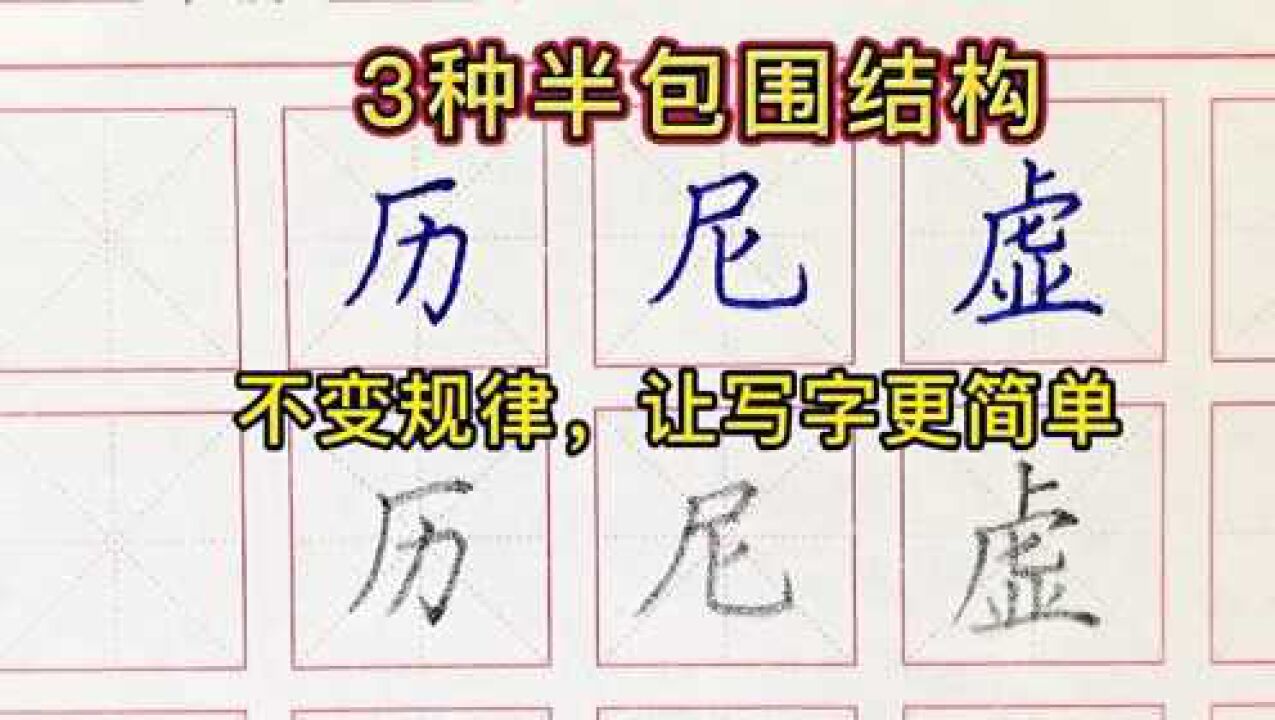 3种半包围结构
历 尼 虚
不变规律，让写字更简单
历 尼 虚